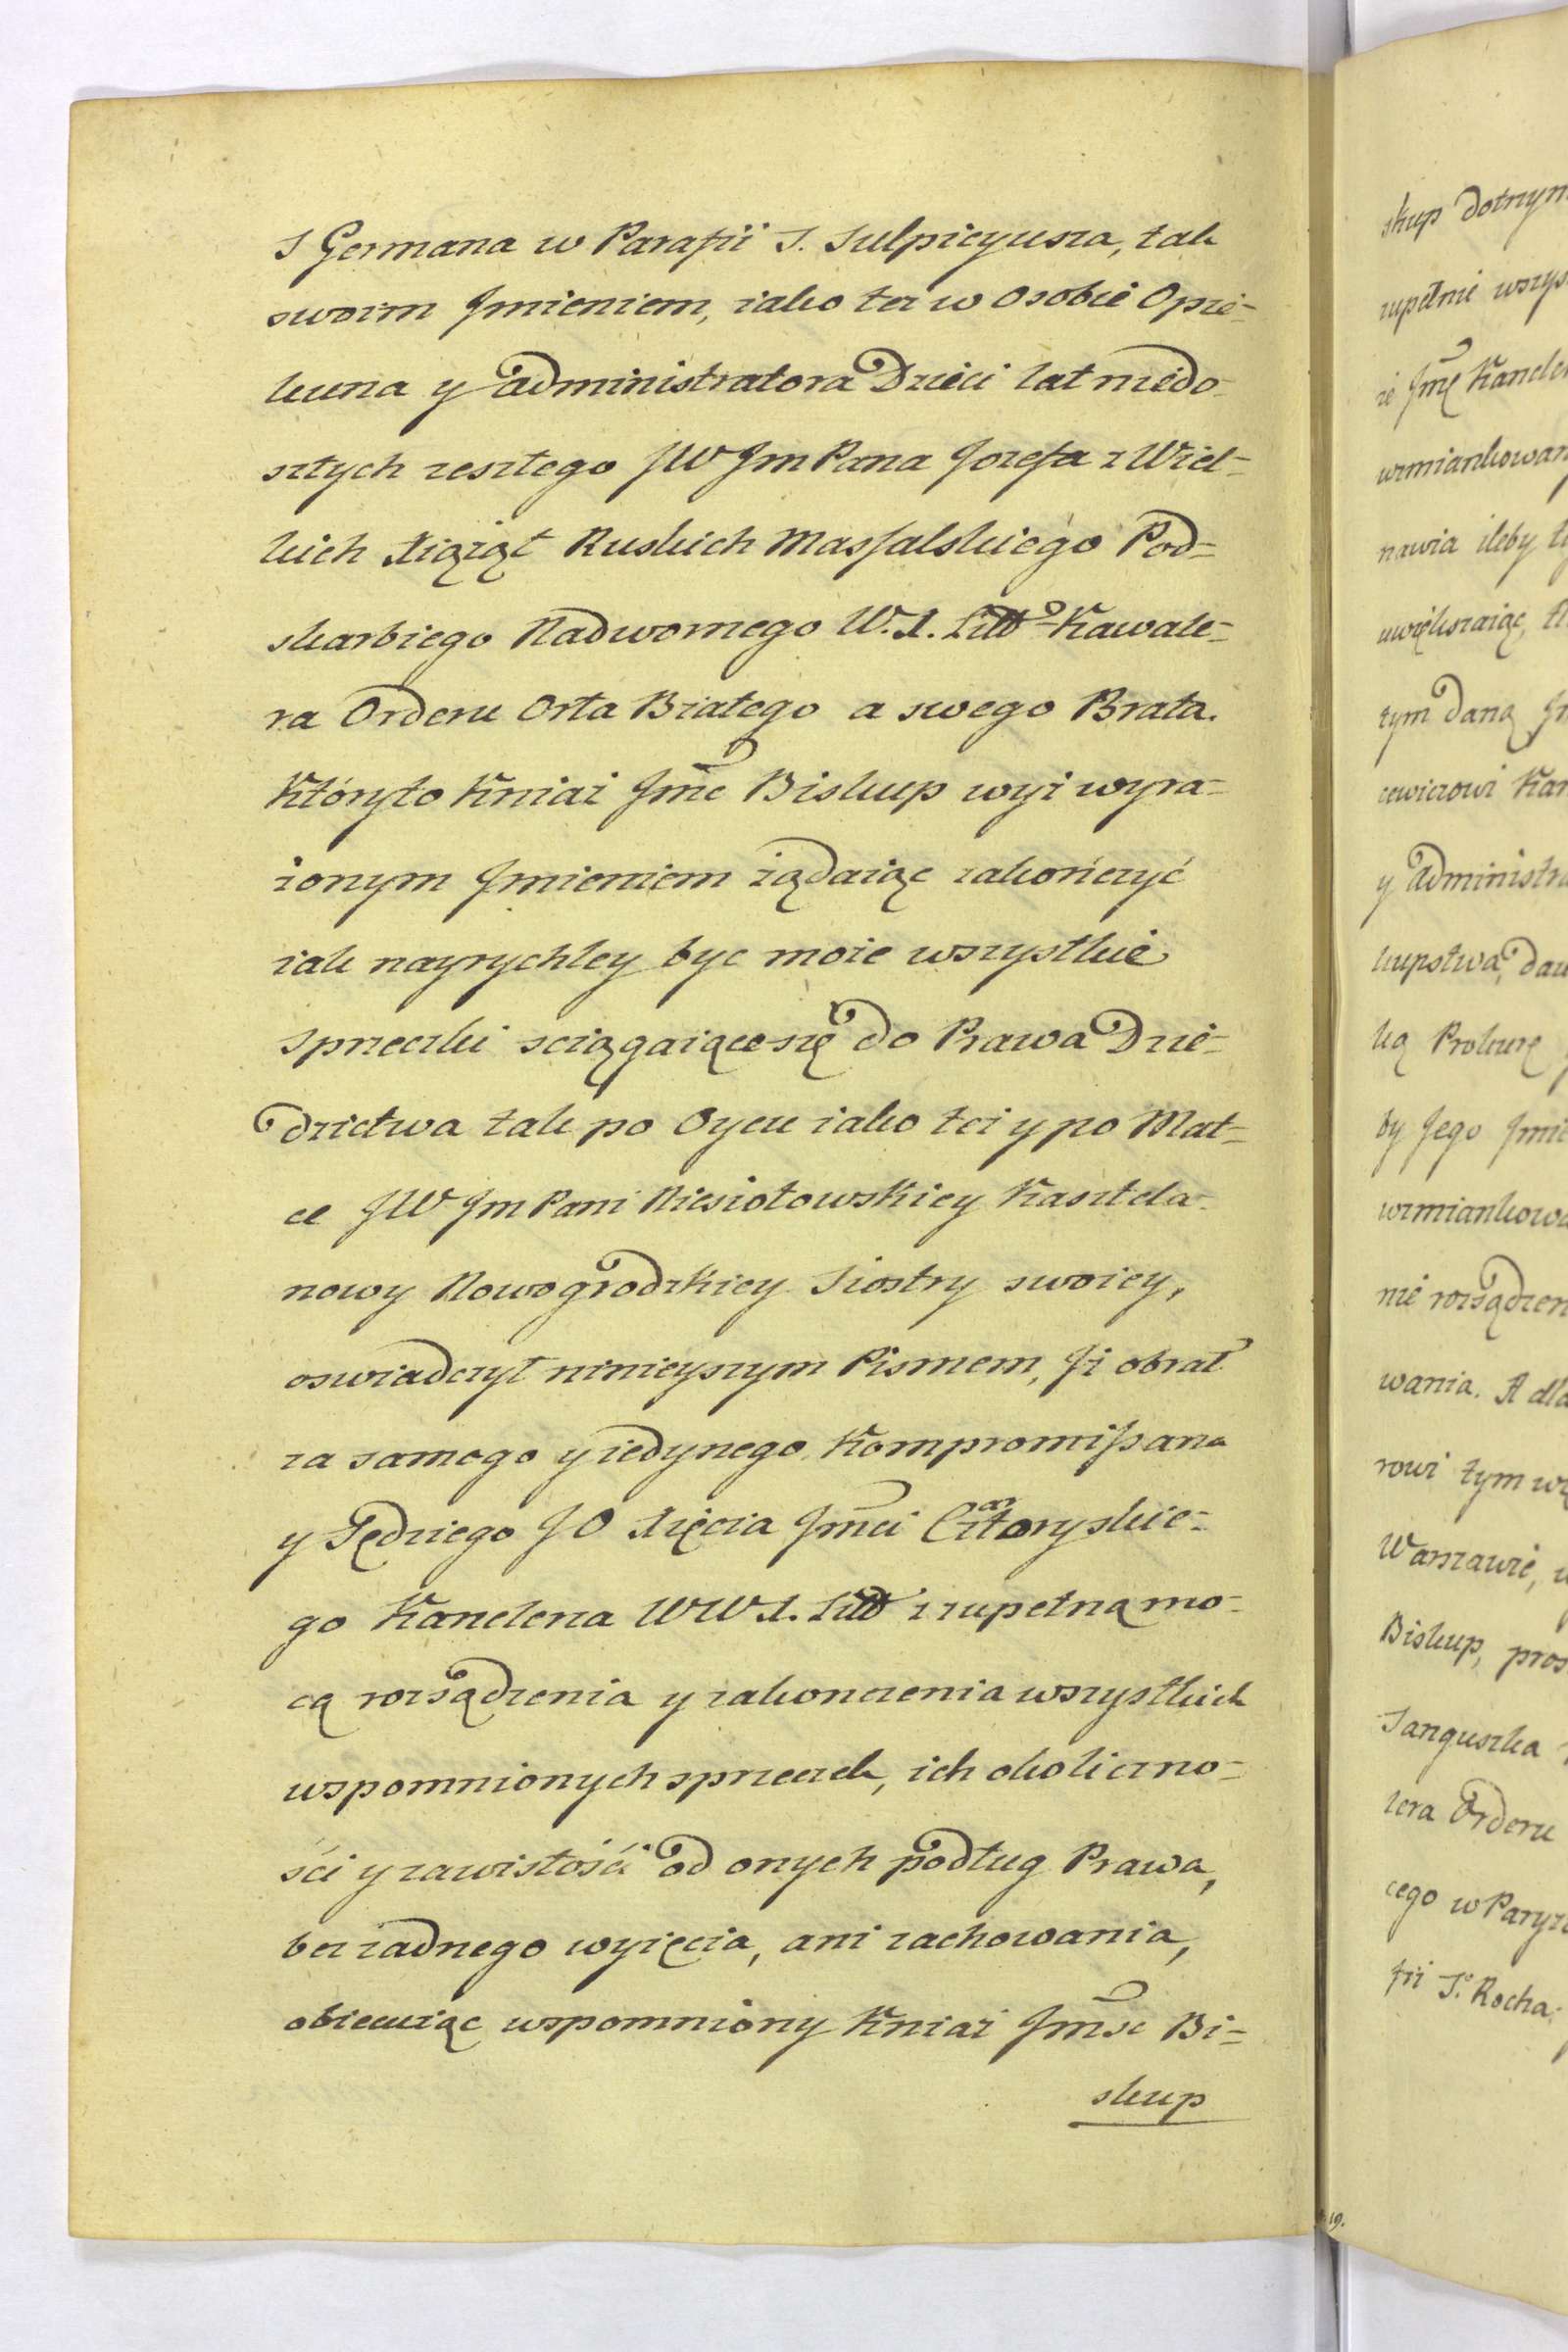 S Germana w Parafii S. Sulpicyusza, tak
swoim Jmieniem, iako tez w Osobie Opie-
kuna y administratora Dzieci lat niedo-
szłych zeszłego JW Jm Pana Jozefa z Wiel-
kich Xiążąt Ruskich Massalskiego Pod-
skarbiego Nadwornego W. X. Litto Kawale-
ra Orderu Orła Białego a swego Brata.
Któryto Kniaź Jmc Biskup wyż wyra-
żonym Jmieniem żądaiąc zakończyć
iak nayrychley byc może wszystkie
sprzeczki sciągaiące się do Prawa Dzie-
dzictwa tak po Oycu iako też y po Mat-
ce JW Jm Pani Niesiołowskiey Kasztela-
nowy Nowogrodzkiey Siostry swoiey,
oswiadczył ninieyszym Pismem, Jż obrał
za samego y iedynego Kompromissarza
y Sędziego JO Xięcia Jmci Czartoryskie-
go Kanclerza WWX. Litt z zupełną mo-
cą rozsądzenia y zakonczenia wszystkich
wspomnionych sprzeczek, ich okoliczno-
ści y zawisłości od onych podług Prawa,
bez zadnego wyięcia, ani zachowania,
obiecuiąc wspomniony Kniaź Jmśc Bi-
skup
skup dotrzym
zupełnie wszys
że Jmc Kancle
wzmiankowan
nawia ileby t
uwiększaiąc,
tym daną
cewiczowi Kan
y administra
kupstwa, dau
ką Prokurę
by Jego Jmie
wzmiankowa
nie rozsądzen
wania. A dla
rowi tym
Warszawie,
Biskup, pros
Sanguszka
lera Orderu
cego w Paryż
fii S. Rocha.
19.